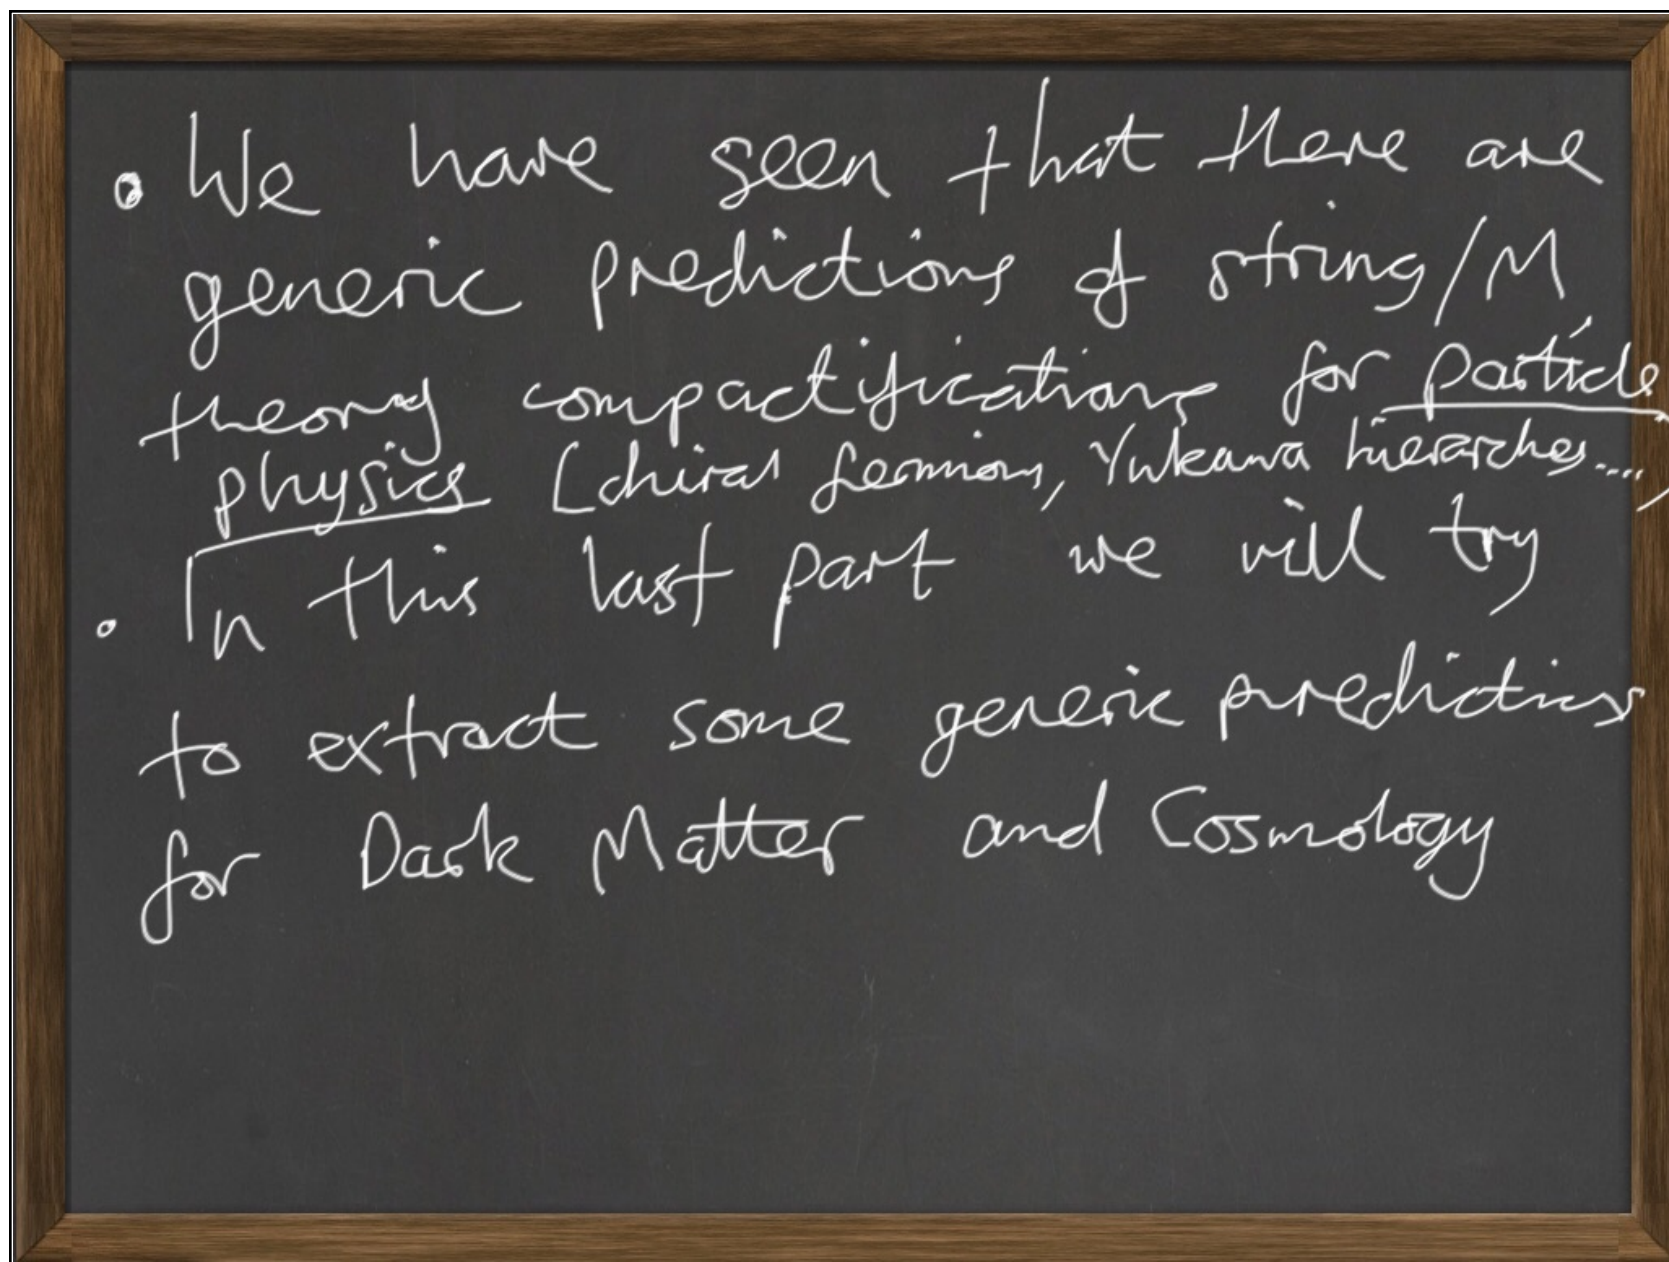 • We have seen that there are
generic predictions of string/M
theory compactifications for particle
physics (chiral fermions, Yukawa hierarches....)
• In this last part we will try
to extract some generic predictions
for Dark Matter and Cosmology